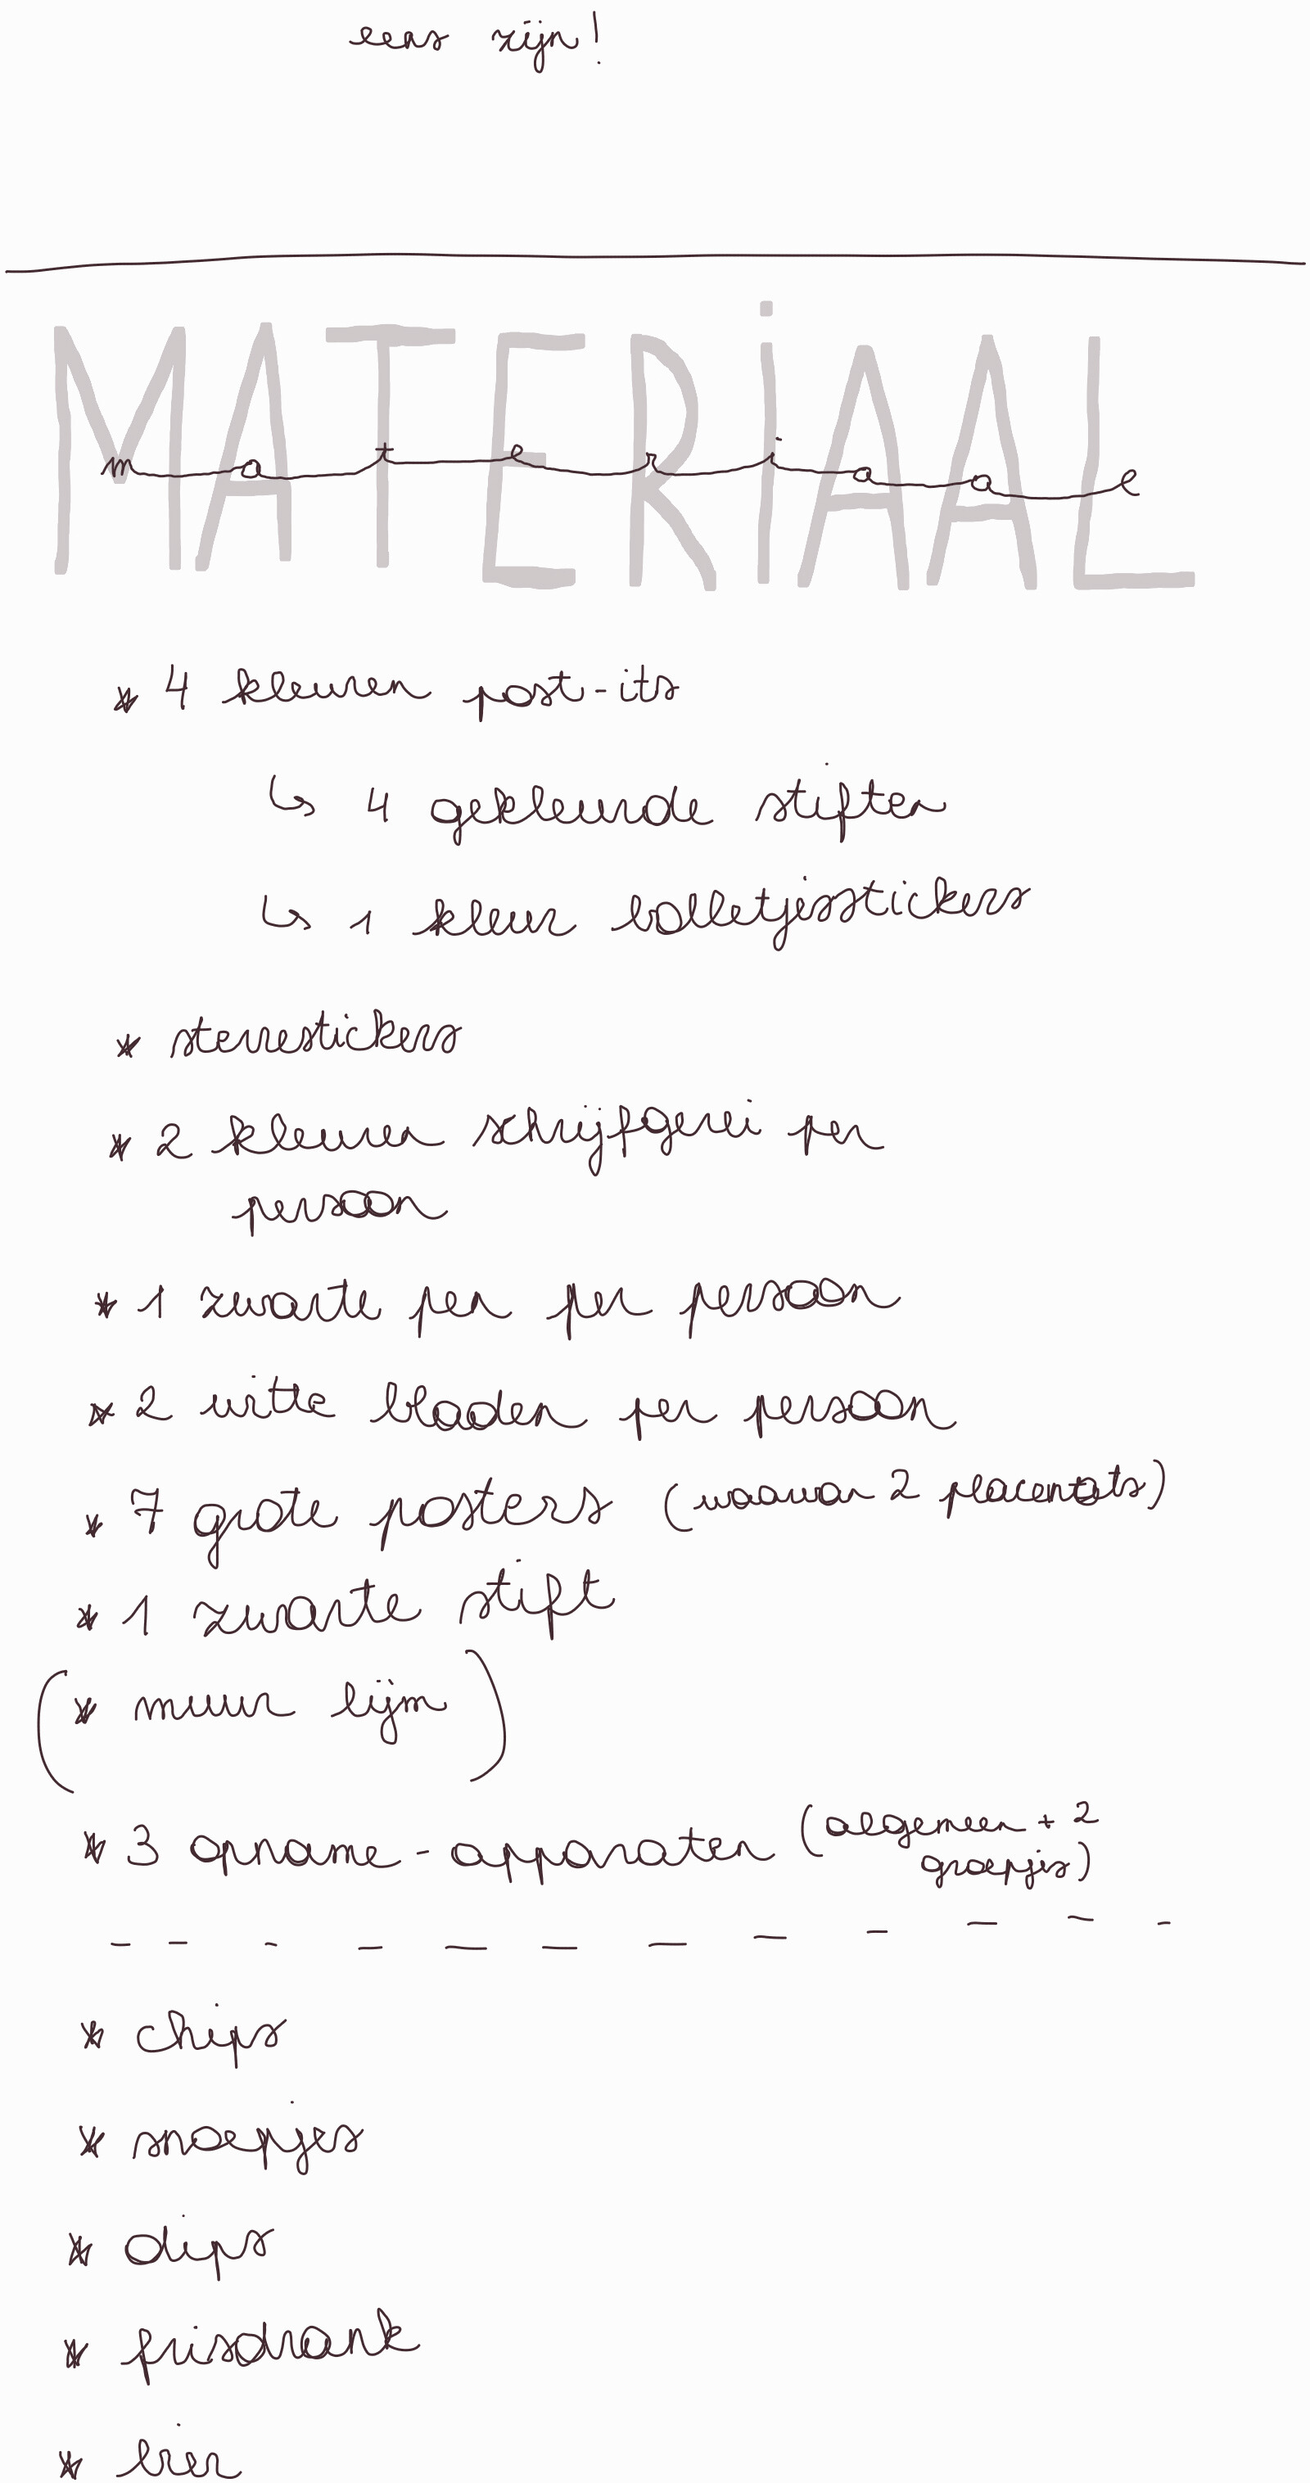 eens zijn!
MATERiAAL
materiaal
* 4 kleuren post-its
↳ 4 gekleurde stiften
↳ 1 kleur bolletjesstickers
* sterrestickers
* 2 kleuren schrijfgerei per
persoon
* 1 zwarte pen per persoon
* 2 witte bladen per persoon
* 7 grote posters (waarvan 2 placemats)
* 1 zwarte stift
(* muur lijm)
* 3 opname-apparaten (algemeen + 2
groepjes)
* chips
* snoepjes
* dips
* frisdrank
* bier